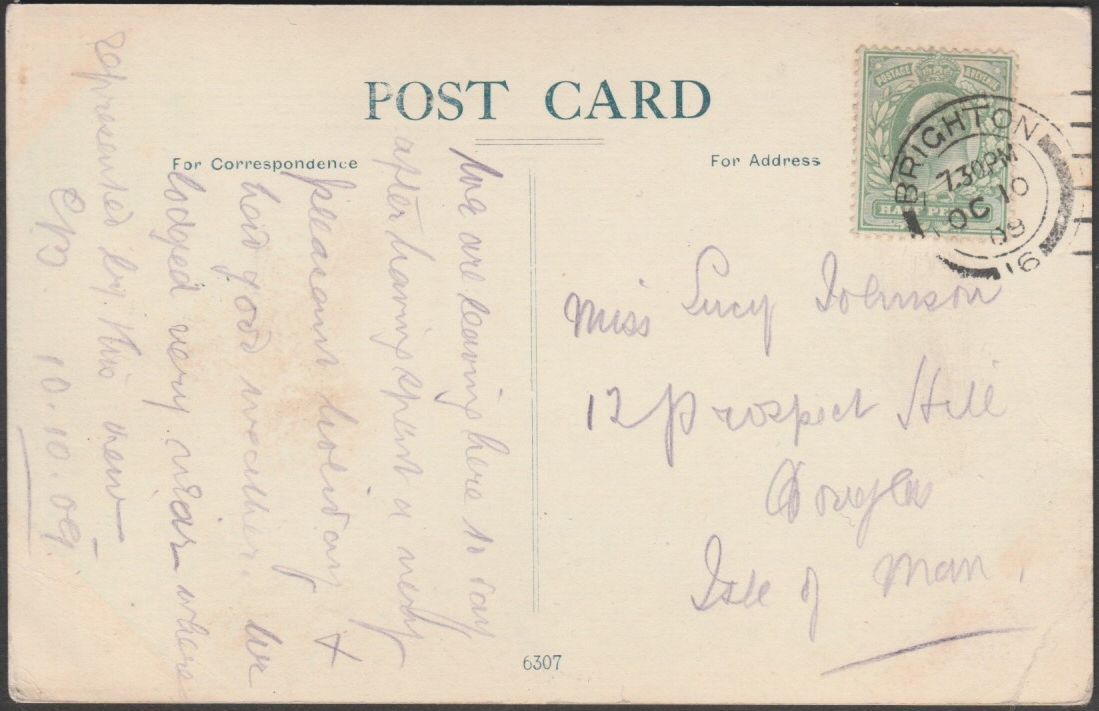 POST CARD
For Correspondence
For Address
POSTAGE & REVENUE
HALF PENNY
BRIGHTON
7.30PM
OC 10
09
16
We are leaving here to day
after having spent a very
pleasant holiday +
had good weather. We
lodged very near where
represented by this view
10.10.09.
Miss Lucy Johnson
12 Prospect Hill
Douglas
Isle of Man.
6307